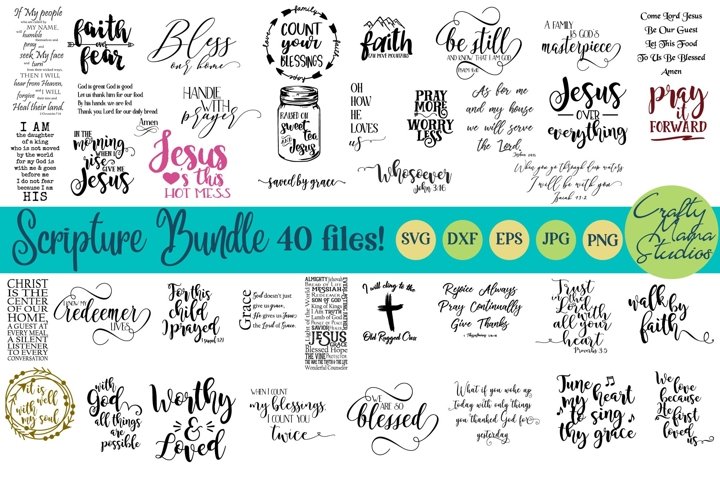 If My people
who are called by
MY NAME,
will humble
themselves and
pray and
seek MY Face
and turn
from their wicked ways
THEN I WILL
hear from Heaven,
and I will
forgive their sin
and I will
Heal their land.
faith
over
fear
Bless
our home
family
love
faith
COUNT
your
BLESSINGS
faith
CAN MOVE MOUNTAINS
be still
AND KNOW THAT I AM GOD
PSALM 46:10
A FAMILY
IS GOD'S
masterpiece
Come Lord Jesus
Be Our Guest
Let This Food
To Us Be Blessed
Amen
God is great God is good
Let us thank him for our food
By his hands, we are fed
Thank you Lord for our daily bread
Amen
HANDLE
WITH
prayer
RAISED ON
sweet
tea
&
Jesus
OH
HOW
HE
LOVES
us
PRAY
MORE
WORRY
LESS
As for me
and my house
we will serve
the Lord.
Joshua 24:15
Jesus
OVER
everything
pray
it
FORWARD
I AM
the daughter
of a king
who is not moved
by the world
for my God is
with me & goes
before me
I do not fear
because I am
HIS
IN THE
morning
WHEN I
rise
GIVE ME
Jesus
Jesus
&
this
HOT MESS
saved by grace
Whosoever
John 3:16
When you go through deep waters
I will be with you
Isaiah 43:2
Scripture Bundle 40 files!
SVG
DXF
EPS
JPG
PNG
Crafty
Mama
Studios
CHRIST
IS THE
CENTER
OF OUR
HOME,
A GUEST AT
EVERY MEAL,
A SILENT
LISTENER
TO EVERY
CONVERSATION
I know My
redeemer
LIVES
For this
child
I prayed
1 Samuel 1:27
Grace
God doesn't just
give us grace,
He gives us Jesus
the Lord of Grace.
ALMIGHTY
Bread of Life
MESSIAH
REDEEMER
SON OF GOD
King of Kings
I Am TRUTH
Lamb of God
Prince of Peace
SAVIOR
JESUS
Blessed Hope
THE VINE
THE WAY THE TRUTH THE LIFE
Wonderful Counselor
Light of the World
EVERLASTING FATHER
I will cling to the
Old Rugged Cross
Rejoice Always
Pray Continually
Give Thanks
Trust
in the
Lord
with all
your
heart
Proverbs 3:5
walk by
faith
it is
well
with
my soul
with
God
all things
are
possible
Worthy
&
Loved
WHEN I COUNT
my blessings,
I COUNT YOU
twice
WE
ARE SO
blessed
What if you woke up
Today with only things
you thanked God for
yesterday
Tune
my heart
to sing
thy grace
We love
because
He first
loved
us